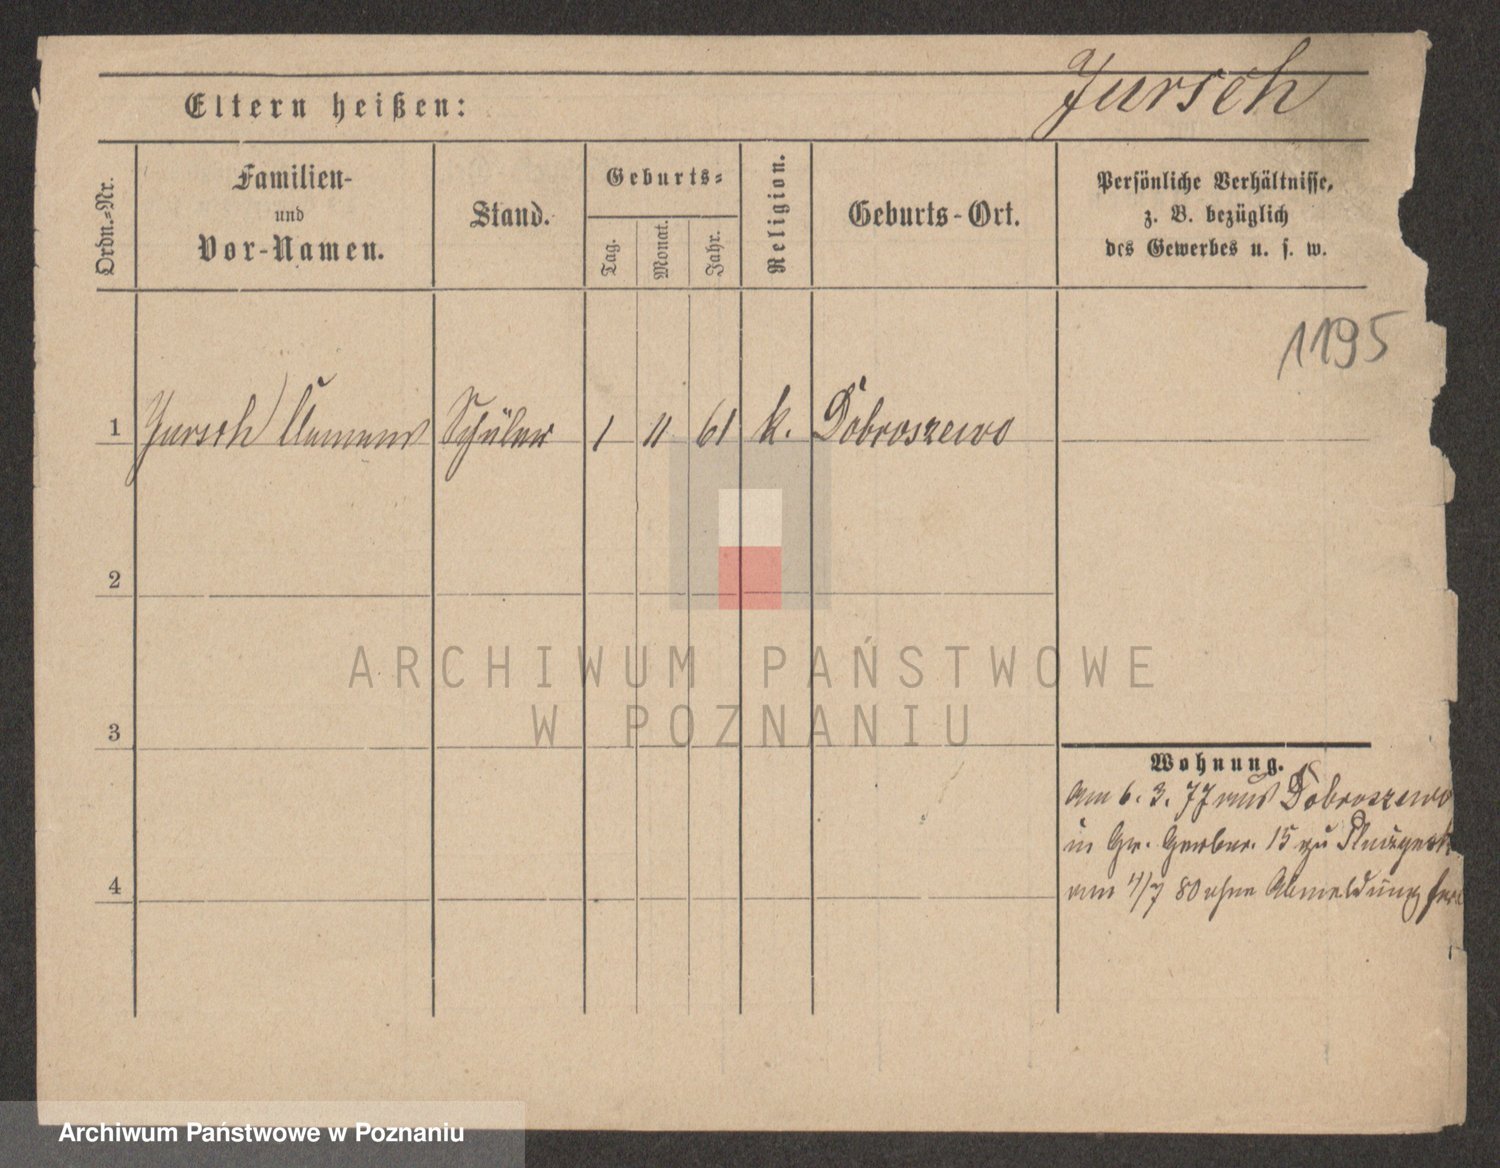 Jursch
Eltern heißen:
Ordn.-Nr.
Familien-
und
Vor-Namen.
Stand.
Geburts-
Tag.
Monat.
Jahr.
Religion.
Geburts-Ort.
Persönliche Verhältnisse,
z. B. bezüglich
des Gewerbes u. s. w.
1195
1 Jursch Clemens Schüler 1 11 61 k. Dobroszewo
2
3
4
Wohnung.
Am 6. 3. 77 aus Dobroszewo
in Gr. Gerber. 15 zu
am 4/7 80 ohne Abmeldung
ARCHIWUM PAŃSTWOWE
W POZNANIU
Archiwum Państwowe w Poznaniu